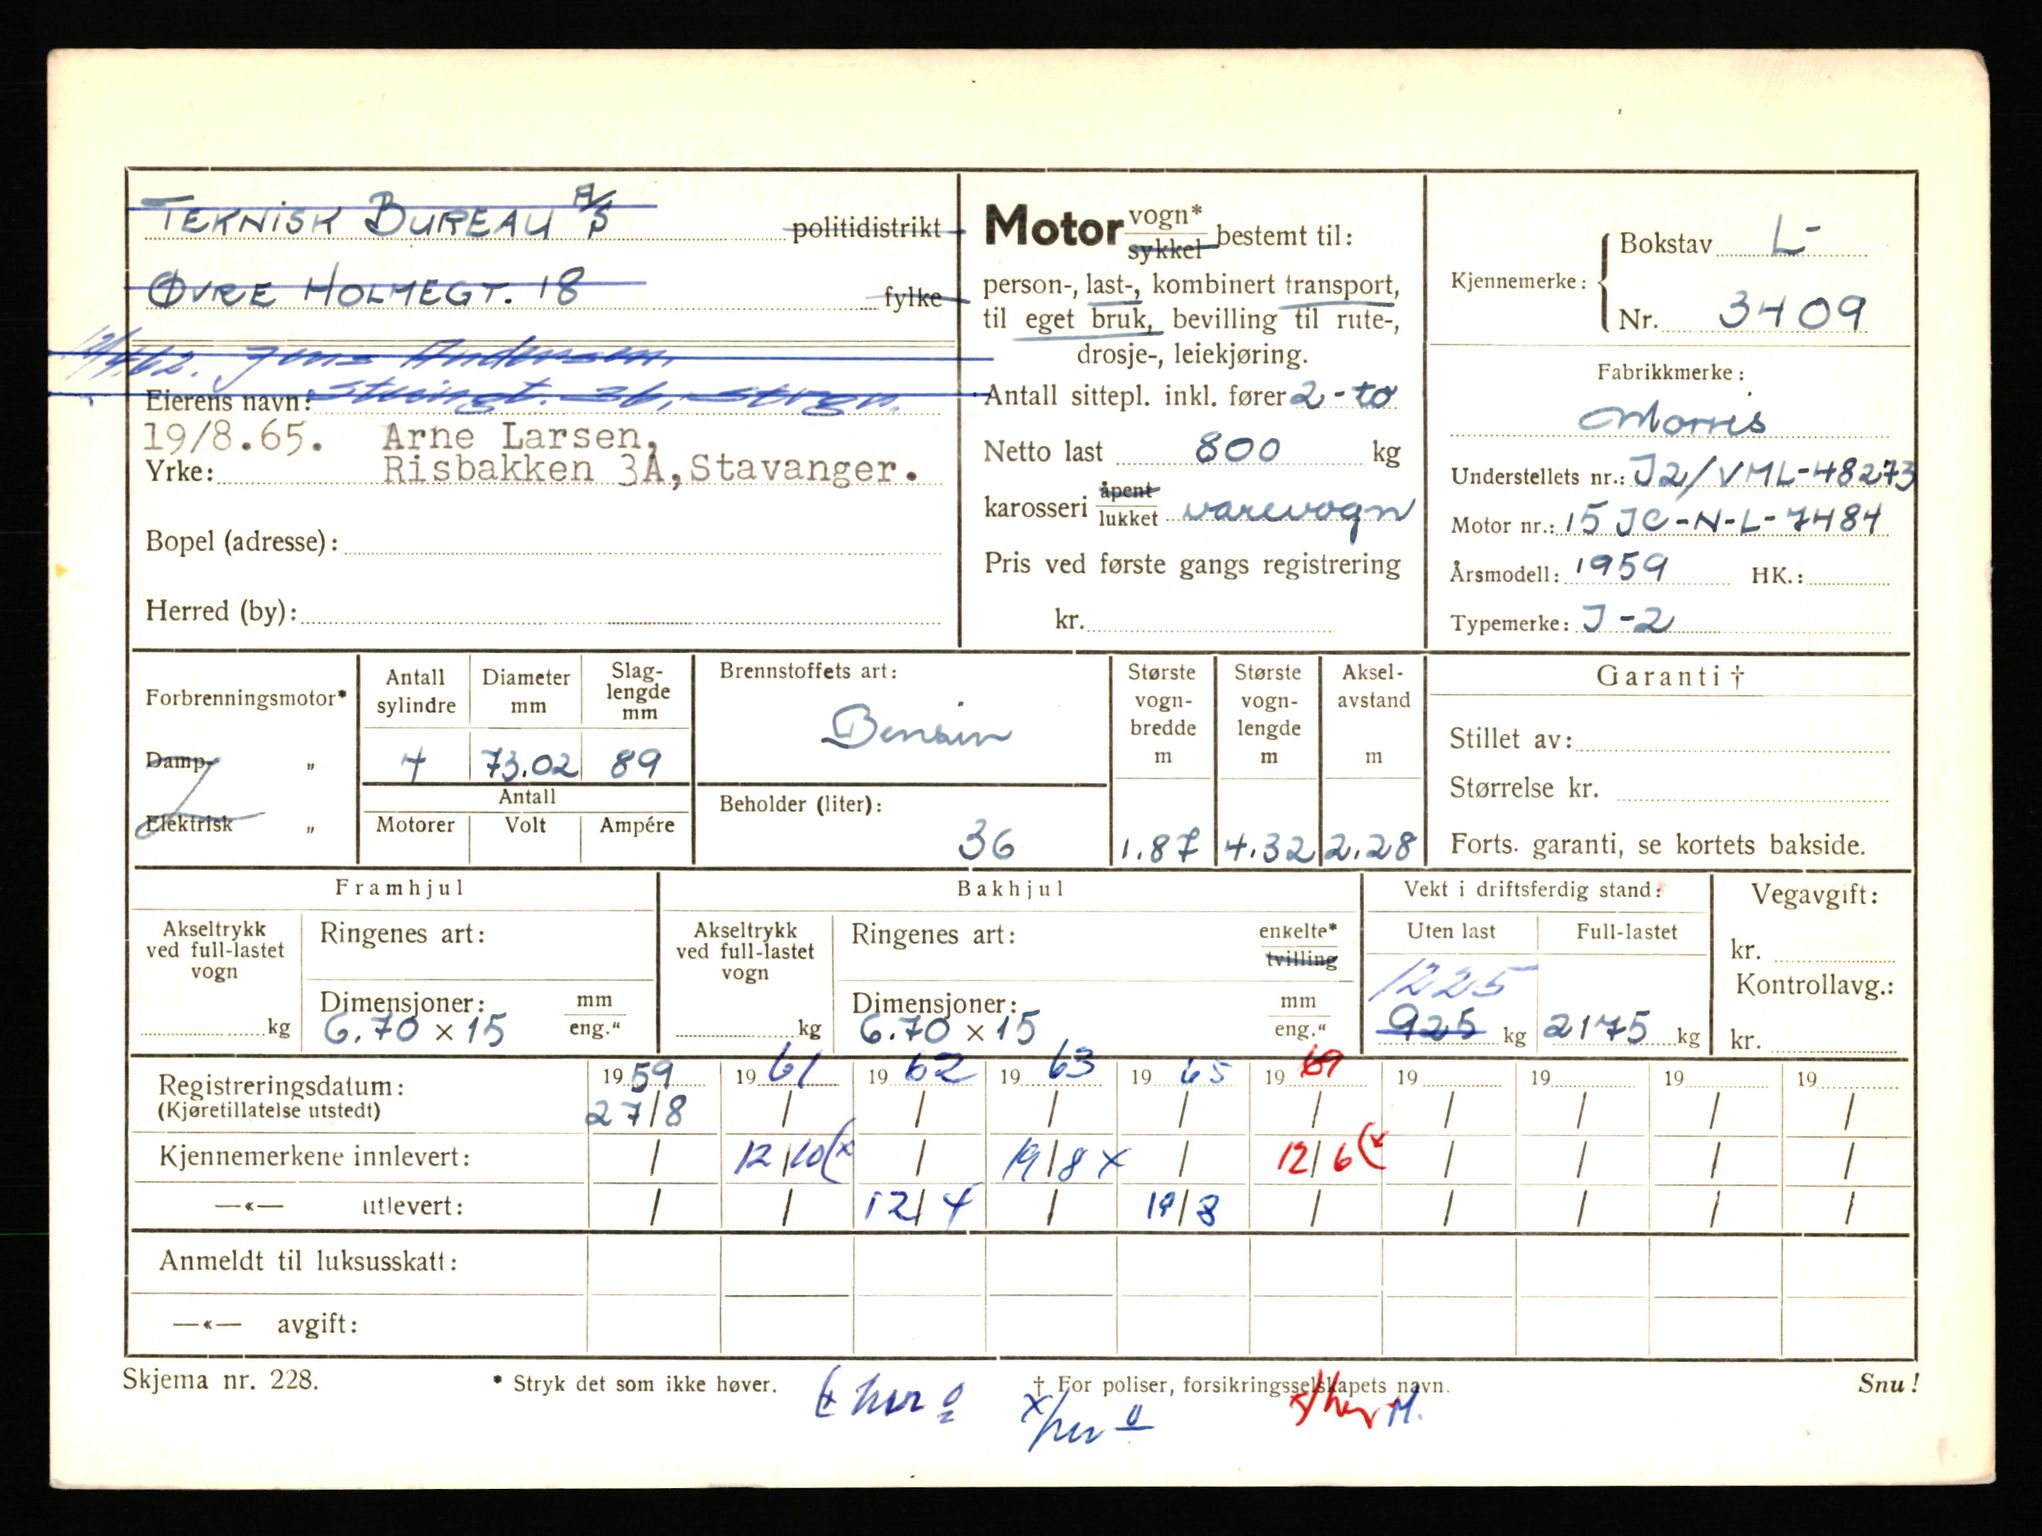 TEKNISK BUREAU A/S politidistrikt
ØVRE HOLMEGT. 18 fylke
12/4.62. Jens Andersen
Eierens navn: Steingt. 36, Stvgr.
19/8.65. Arne Larsen,
Yrke: Risbakken 3A, Stavanger.
Bopel (adresse):
Herred (by):
Motor vogn* sykkel bestemt til:
person-, last-, kombinert transport,
til eget bruk, bevilling til rute-,
drosje-, leiekjøring.
Antall sittepl. inkl. fører 2 - to
Netto last 800 kg
karosseri åpent lukket varevogn
Pris ved første gangs registrering
kr.
Kjennemerke: Bokstav L-
Nr. 3409
Fabrikkmerke:
Morris
Understellets nr.: J2/VML-48273
Motor nr.: 15 JC-N-L-7484
Årsmodell: 1959 HK.:
Typemerke: J-2
Forbrenningsmotor*
Damp- „
Elektrisk „
Antall sylindre Diameter mm Slag-lengde mm
4 73.02 89
Antall
Motorer Volt Ampére
Brennstoffets art:
Bensin
Beholder (liter):
36
Største vogn-bredde m Største vogn-lengde m Aksel-avstand m
1.87 4.32 2.28
Garanti †
Stillet av:
Størrelse kr.
Forts. garanti, se kortets bakside.
Framhjul
Akseltrykk ved full-lastet vogn
kg
Ringenes art:
Dimensjoner: mm eng.“
6.70 x 15
Bakhjul
Akseltrykk ved full-lastet vogn
kg
Ringenes art: enkelte* tvilling
Dimensjoner: mm eng.“
6.70 x 15
Vekt i driftsferdig stand:
Uten last Full-lastet
1225
925 kg 2175 kg
Vegavgift:
kr.
Kontrollavg.:
kr.
Registreringsdatum: 1959 1961 1962 1963 1965 1969 19 19 19 19
(Kjøretillatelse utstedt) 27/8 / / / / / / / / /
Kjennemerkene innlevert: / 12/10 (x / 19/8 x / 12/6 (x / / / /
—«— utlevert: / / 12/4 / 19/8 / / / / /
Anmeldt til luksusskatt:
—«— avgift:
Skjema nr. 228. * Stryk det som ikke høver. † For poliser, forsikringsselskapets navn. Snu!